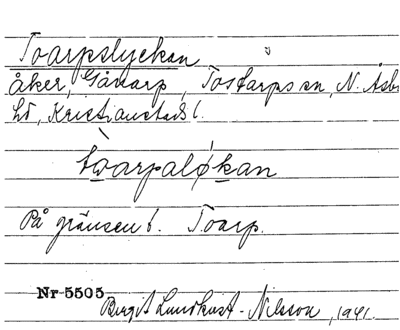 Toarpslyckan
åker, Gåvarp, Tosťarps sn, N. Åsbo
hd, Kristianstads l.
toarpaløkan
På gränsen t. Toarp.
Nr 5505
Birgit Lundkvist-Nilsson, 1941.